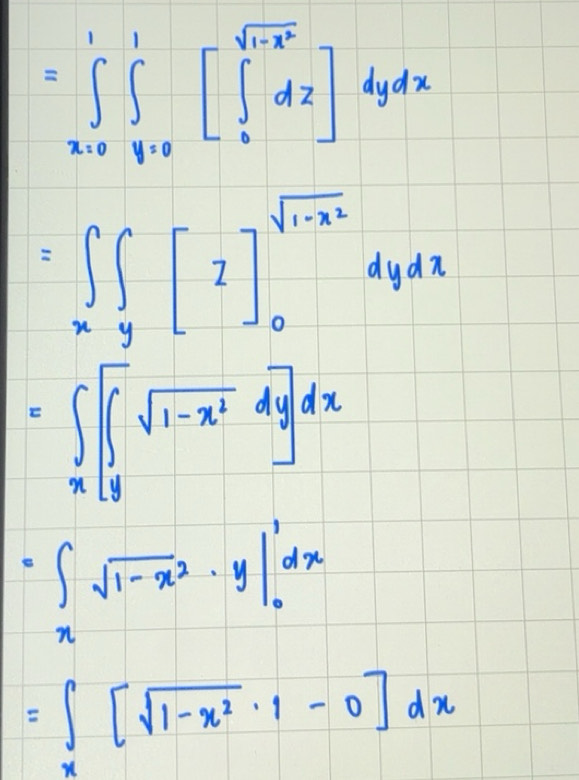 = ∫_{x=0}^{1} ∫_{y=0}^{1} [ ∫_{0}^{√(1-x²)} dz ] dy dx
= ∫_{x} ∫_{y} [ z ]_{0}^{√(1-x²)} dy dx
= ∫_{x} [ ∫_{y} √(1-x²) dy ] dx
= ∫_{x} √(1-x²) · y |_{0}^{1} dx
= ∫_{x} [ √(1-x²) · 1 - 0 ] dx